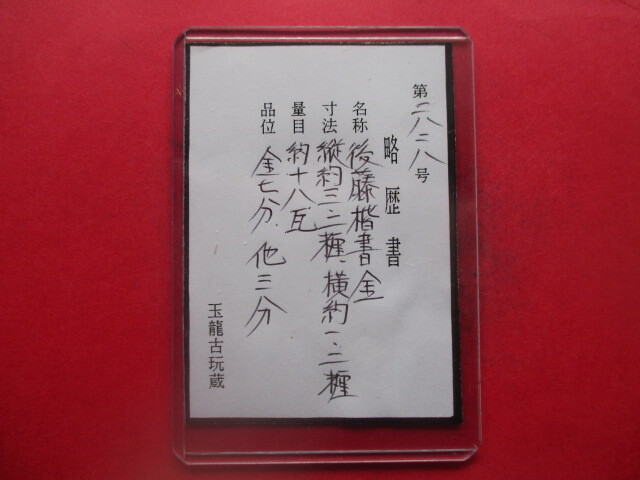 第二八二八号
略歴書
名称 後藤楷書金
寸法 縦約三、二糎、横約一、二糎
量目 約十八瓦
品位 金七分、他三分
玉龍古玩蔵